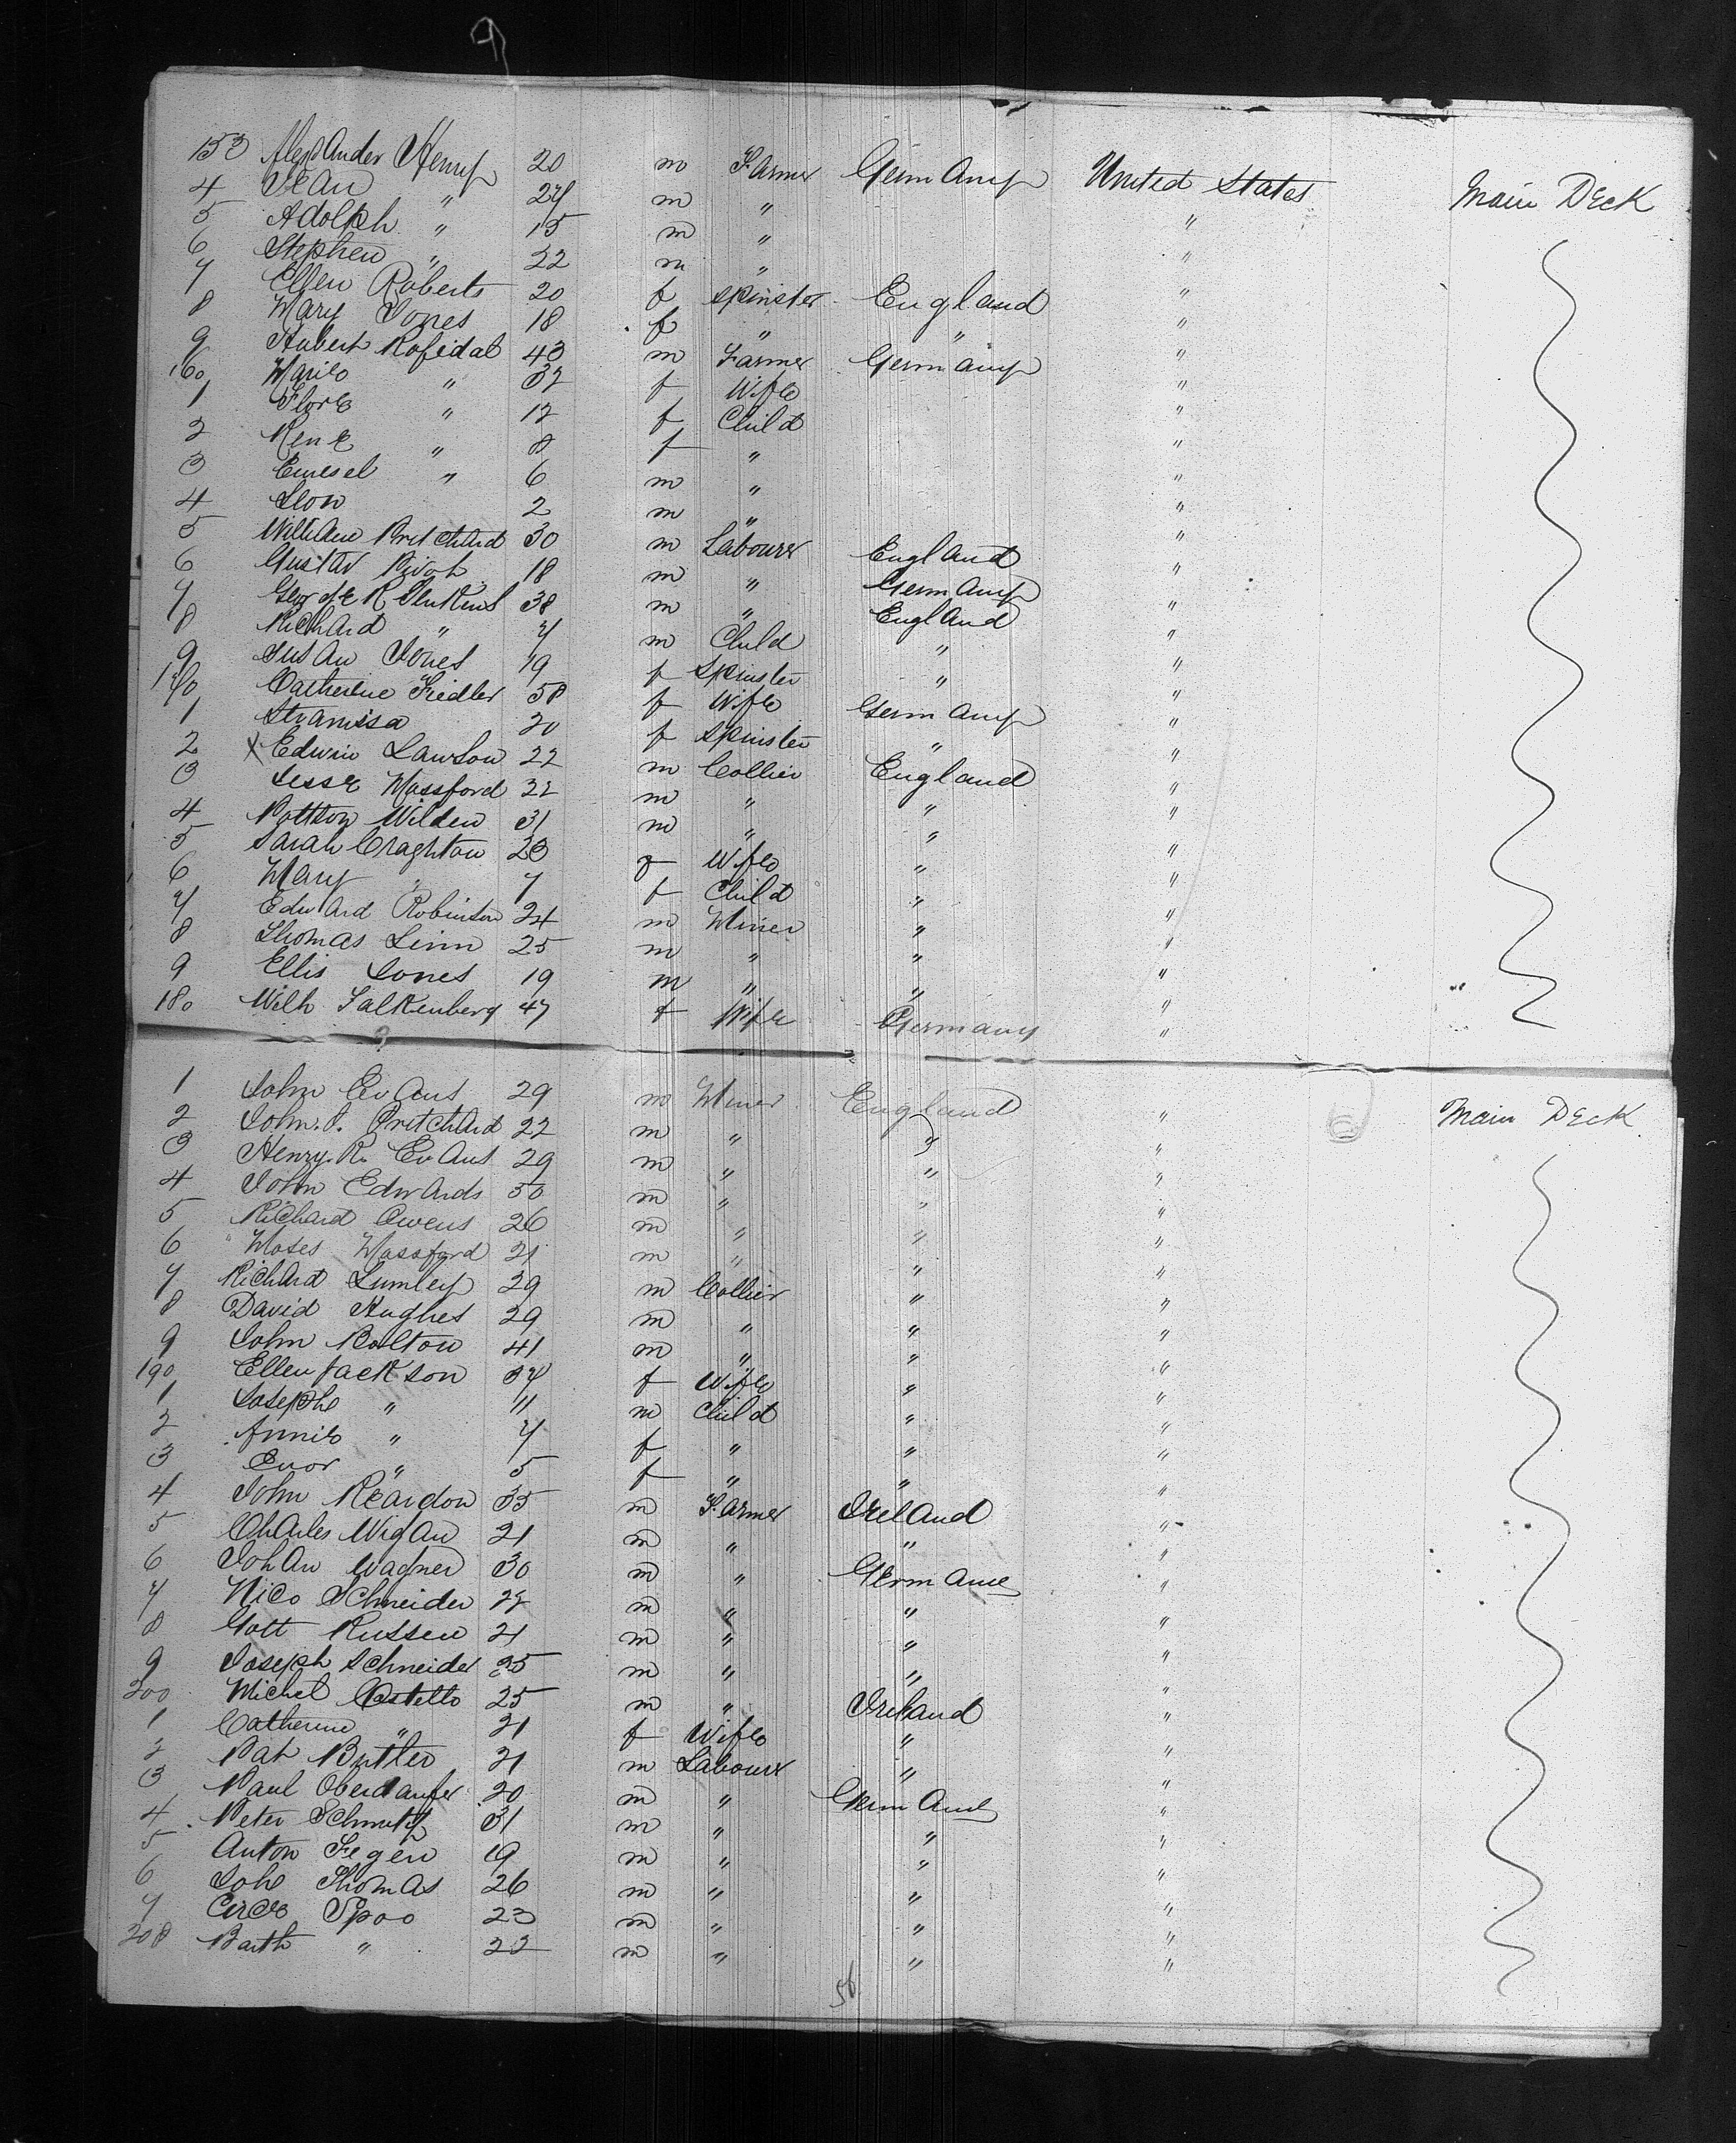 153 Alexander Henry 20 m Farmer Germany United States Main Deck
4 Jean " 24 m " "
5 Adolph " 15 m " "
6 Stephen " 22 m " "
7 Ellen Roberts 20 f Spinster England "
8 Mary Jones 18 f " " "
9 Hubert Rofidal 43 m Farmer Germany "
160 Marie " 32 f Wife "
1 Flore " 12 f Child "
2 Rene " 8 f " "
3 " 6 m " "
4 Leon 2 m " "
5 William Pritchard 30 m Labourer England "
6 Gustav 18 m " Germany "
7 George R Jenkins 38 m " England "
8 Richard " 7 m Child " "
9 Susan Jones 19 f Spinster " "
170 Catherine Fiedler 58 f Wife Germany "
1 20 f Spinster " "
2 x Edwin Lawson 22 m Collier England "
3 Jesse Massford 32 m " " "
4 Wilden 31 m " " "
5 Sarah Craghton 23 f Wife " "
6 Mary " 7 f Child " "
7 Edward Robinson 24 m Miner " "
8 Thomas Linn 25 m " " "
9 Ellis Jones 19 m " " "
180 Wilh Falkenberg 47 f Wife Germany "
1 John Evans 29 m Miner England " Main Deck
2 John. J. Pritchard 22 m " " "
3 Henry. R. Evans 29 m " " "
4 John Edwards 30 m " " "
5 Richard Owens 26 m " " "
6 Moses Massford 21 m " " "
7 Richard Lumley 29 m Collier " "
8 David Hughes 29 m " " "
9 John Bolton 41 m " " "
190 Ellen Jackson 34 f Wife " "
1 Joseph " 11 m Child " "
2 Annie " 7 f " " "
3 " 5 f " " "
4 John Reardon 35 m Farmer Ireland "
5 Charles Wigan 21 m " " "
6 Johan Wagner 30 m " Germany "
7 Nico Schneider 22 m " " "
8 Gott Russen 21 m " " "
9 Joseph Schneider 25 m " " "
200 Michel Costello 25 m " Ireland "
1 Catherine " 21 f Wife " "
2 Pat Butler 21 m Labourer " "
3 Paul 20 m " Germany "
4 Peter Schmitz 31 m " " "
5 Anton Fegen 19 m " " "
6 Joh Thomas 26 m " " "
7 Spoo 23 m " " "
208 Barth " 22 m " " "
56